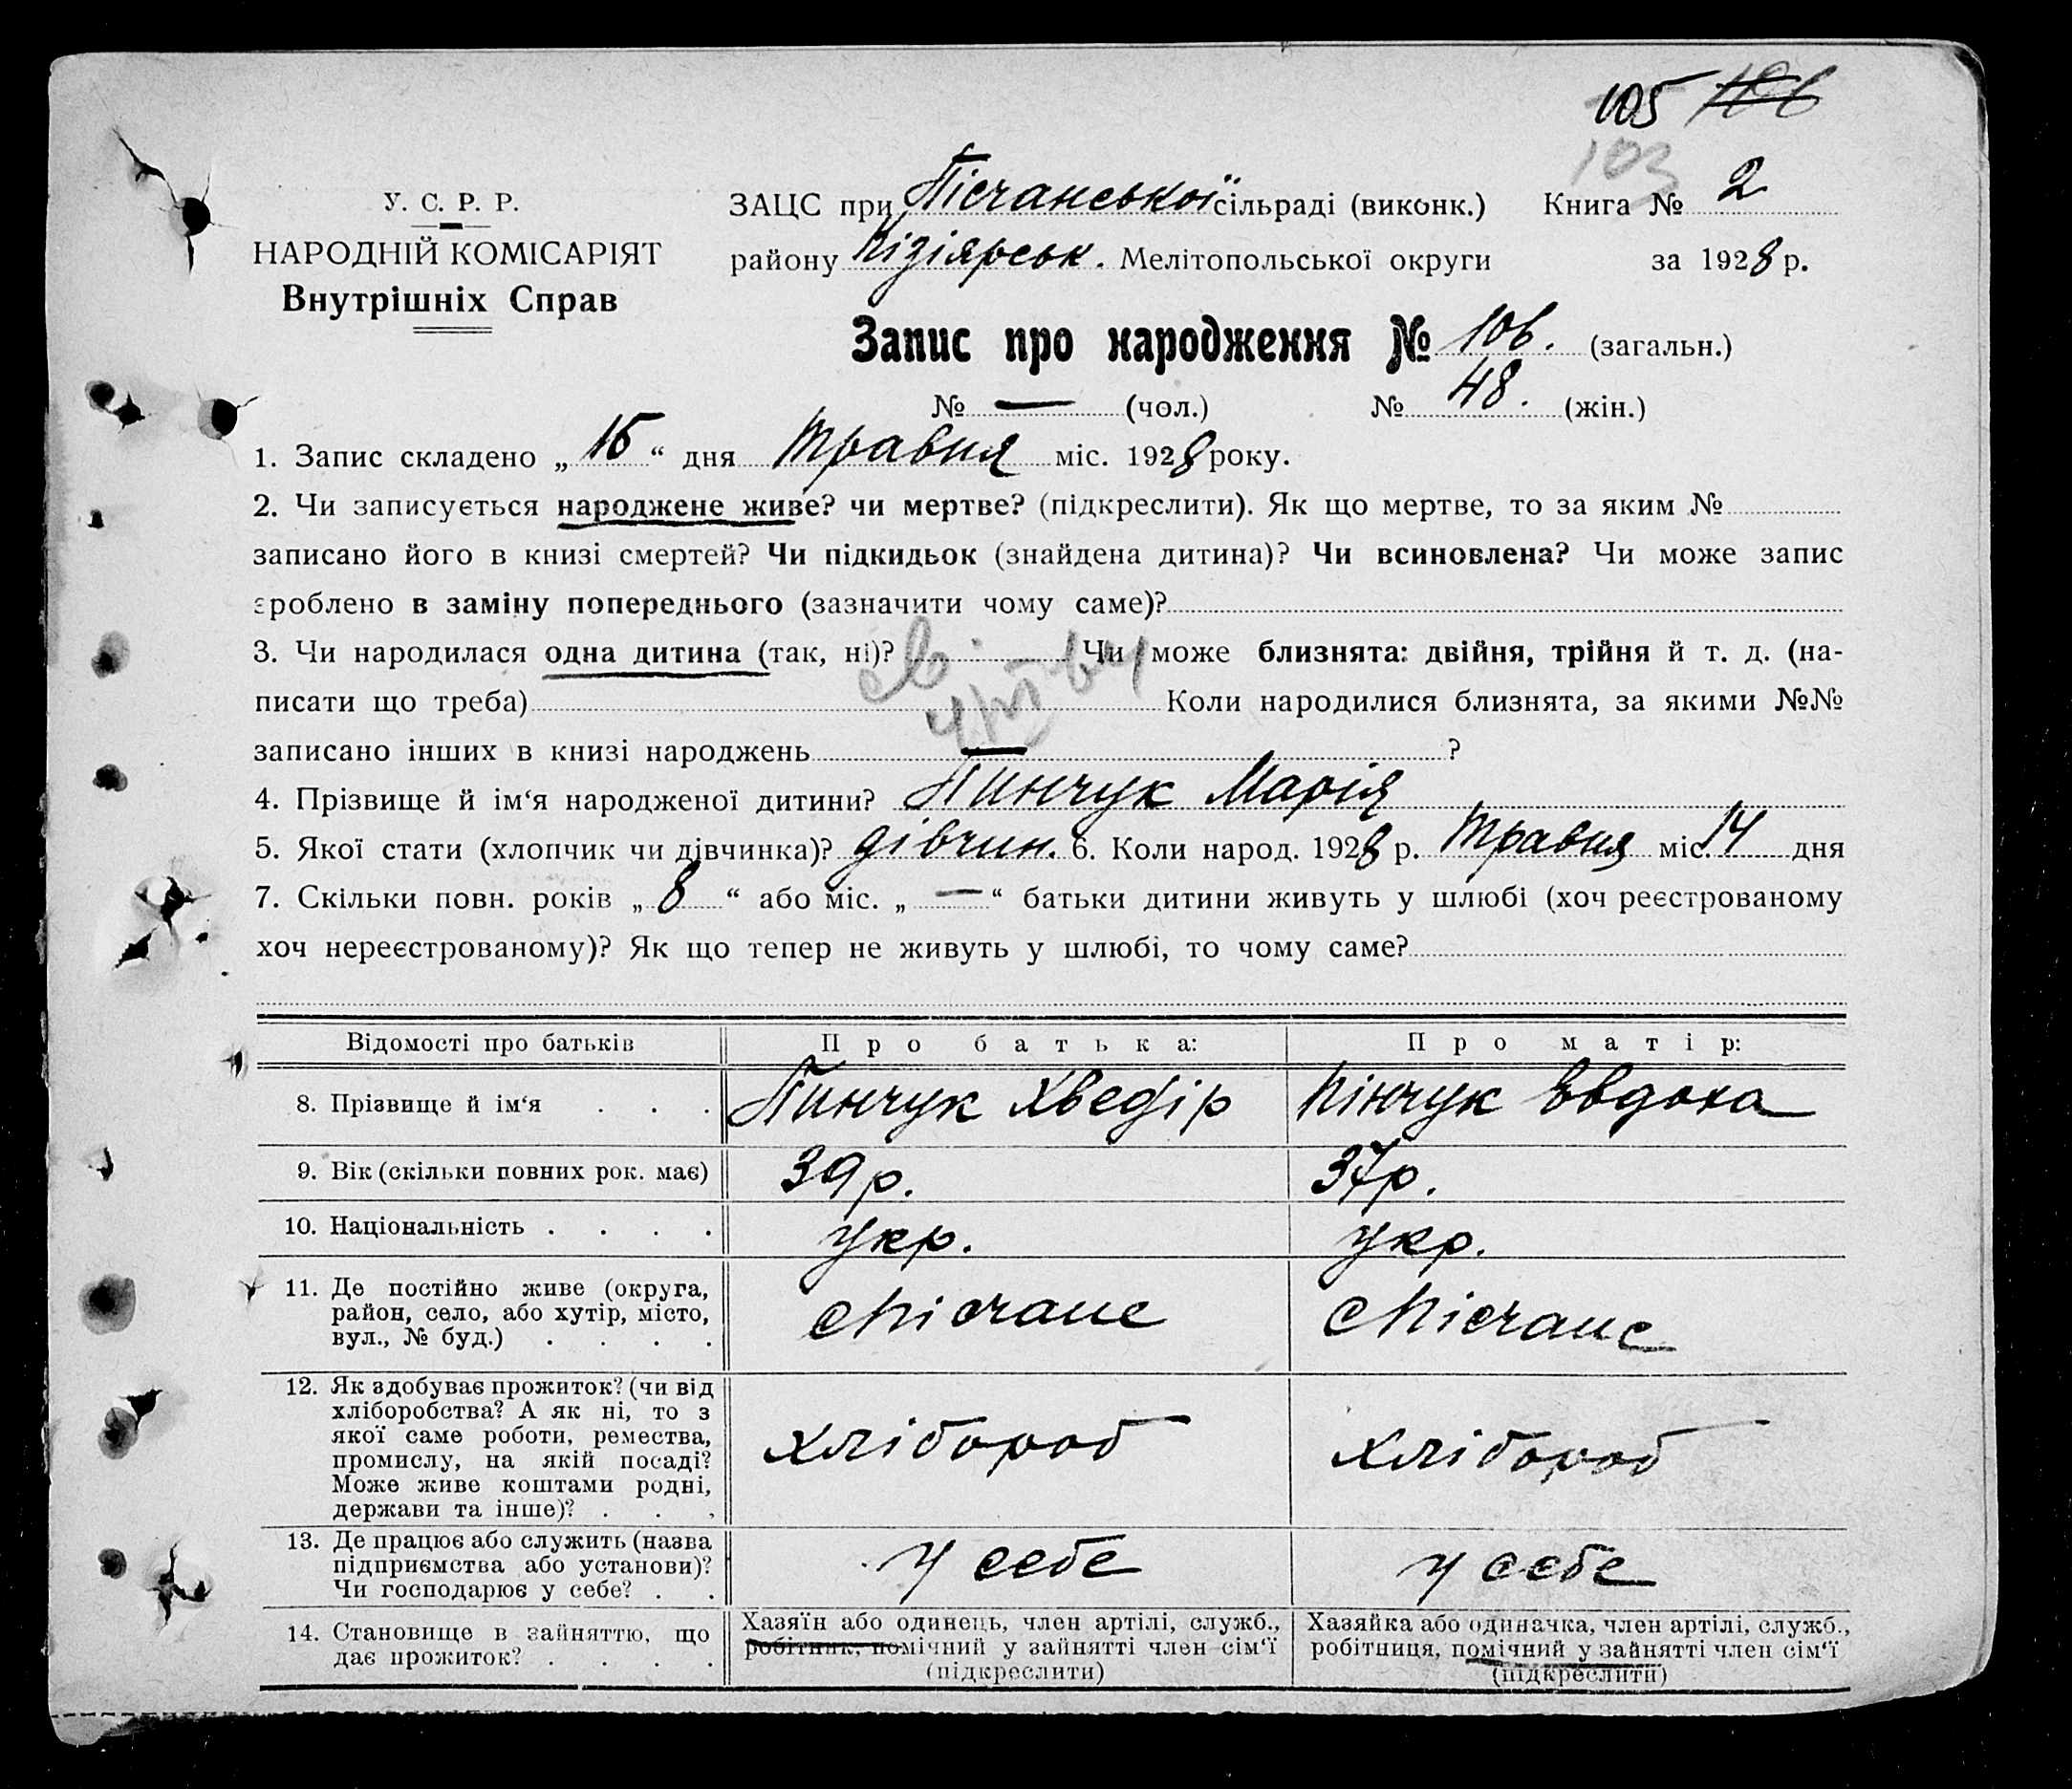 105 106
103
У. С. Р. Р.
НАРОДНІЙ КОМІСАРІЯТ
Внутрішніх Справ
ЗАЦС при Пісчанської сільраді (виконк.) Книга № 2
району Кізіярськ. Мелітопольської округи за 1928 р.
Запис про народження № 106. (загальн.)
№ — (чол.) № 48. (жін.)
1. Запис складено „ 15 “ дня травня міс. 1928 року.
2. Чи записується народжене живе? чи мертве? (підкреслити). Як що мертве, то за яким №
записано його в книзі смертей? Чи підкидьок (знайдена дитина)? Чи всиновлена? Чи може запис
зроблено в заміну попереднього (зазначити чому саме)?
3. Чи народилася одна дитина (так, ні)? Чи може близнята: двійня, трійня й т. д. (на-
писати що треба) Коли народилися близнята, за якими №№
записано інших в книзі народжень — ?
4. Прізвище й ім‘я народженої дитини? Пинчук Марія
5. Якої стати (хлопчик чи дівчинка)? дівчин. 6. Коли народ. 1928 р. травня міс. 14 дня
7. Скільки повн. років „ 8 “ або міс. „ — “ батьки дитини живуть у шлюбі (хоч реєстрованому
хоч нереєстрованому)? Як що тепер не живуть у шлюбі, то чому саме?
Відомості про батьків Про батька: Про матір:
8. Прізвище й ім‘я . . . Пинчук Хведір Пінчук Евдоха
9. Вік (скільки повних рок. має) 39 р. 37 р.
10. Національність . . . . укр. укр.
11. Де постійно живе (округа,
район, село, або хутір, місто,
вул., № буд.) . . . .
сПісчане сПісчане
12. Як здобуває прожиток? (чи від
хліборобства? А як ні, то з
якої саме роботи, ремества,
промислу, на якій посаді?
Може живе коштами родні,
держави та інше)? . . .
хлібороб хлібороб
13. Де працює або служить (назва
підприємства або установи)?
Чи господарює у себе? . .
у себе у себе
14. Становище в зайняттю, що
дає прожиток? . . . .
Хазяїн або одинець, член артілі, служб.,
робітник, помічний у зайнятті член сім‘ї
(підкреслити)
Хазяйка або одиначка, член артілі, служб.,
робітниця, помічний у зайнятті член сім‘ї
(підкреслити)